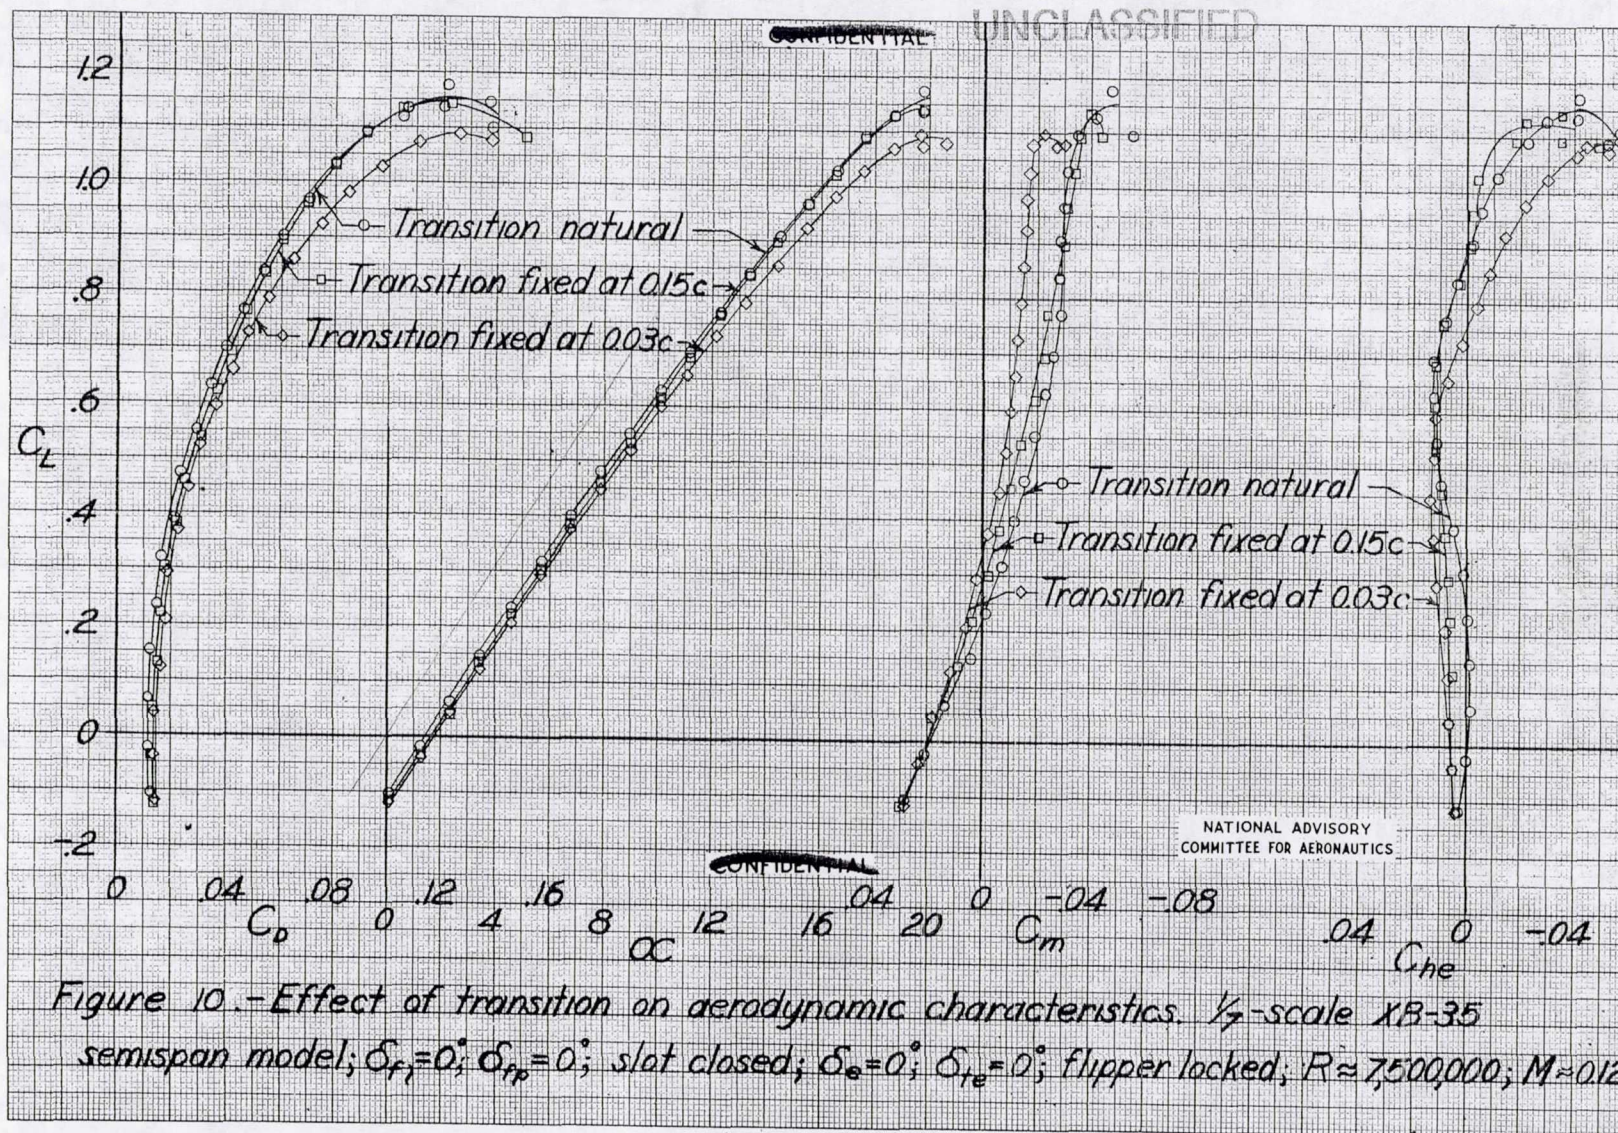 CONFIDENTIAL UNCLASSIFIED
1.2
1.0
.8
.6
C_L
.4
.2
0
-.2
Transition natural
Transition fixed at 0.15c
Transition fixed at 0.03c
Transition natural
Transition fixed at 0.15c
Transition fixed at 0.03c
NATIONAL ADVISORY
COMMITTEE FOR AERONAUTICS
CONFIDENTIAL
0 .04 .08 .12 .16 .04 0 -.04 -.08
C_D 0 4 8 12 16 20 C_m .04 0 -.04
α C_he
Figure 10.-Effect of transition on aerodynamic characteristics. 1/7-scale XB-35
semispan model; =0°; =0°; slot closed; δ_e=0°; δ_te=0°; flipper locked; R≈7,500,000; M≈0.12